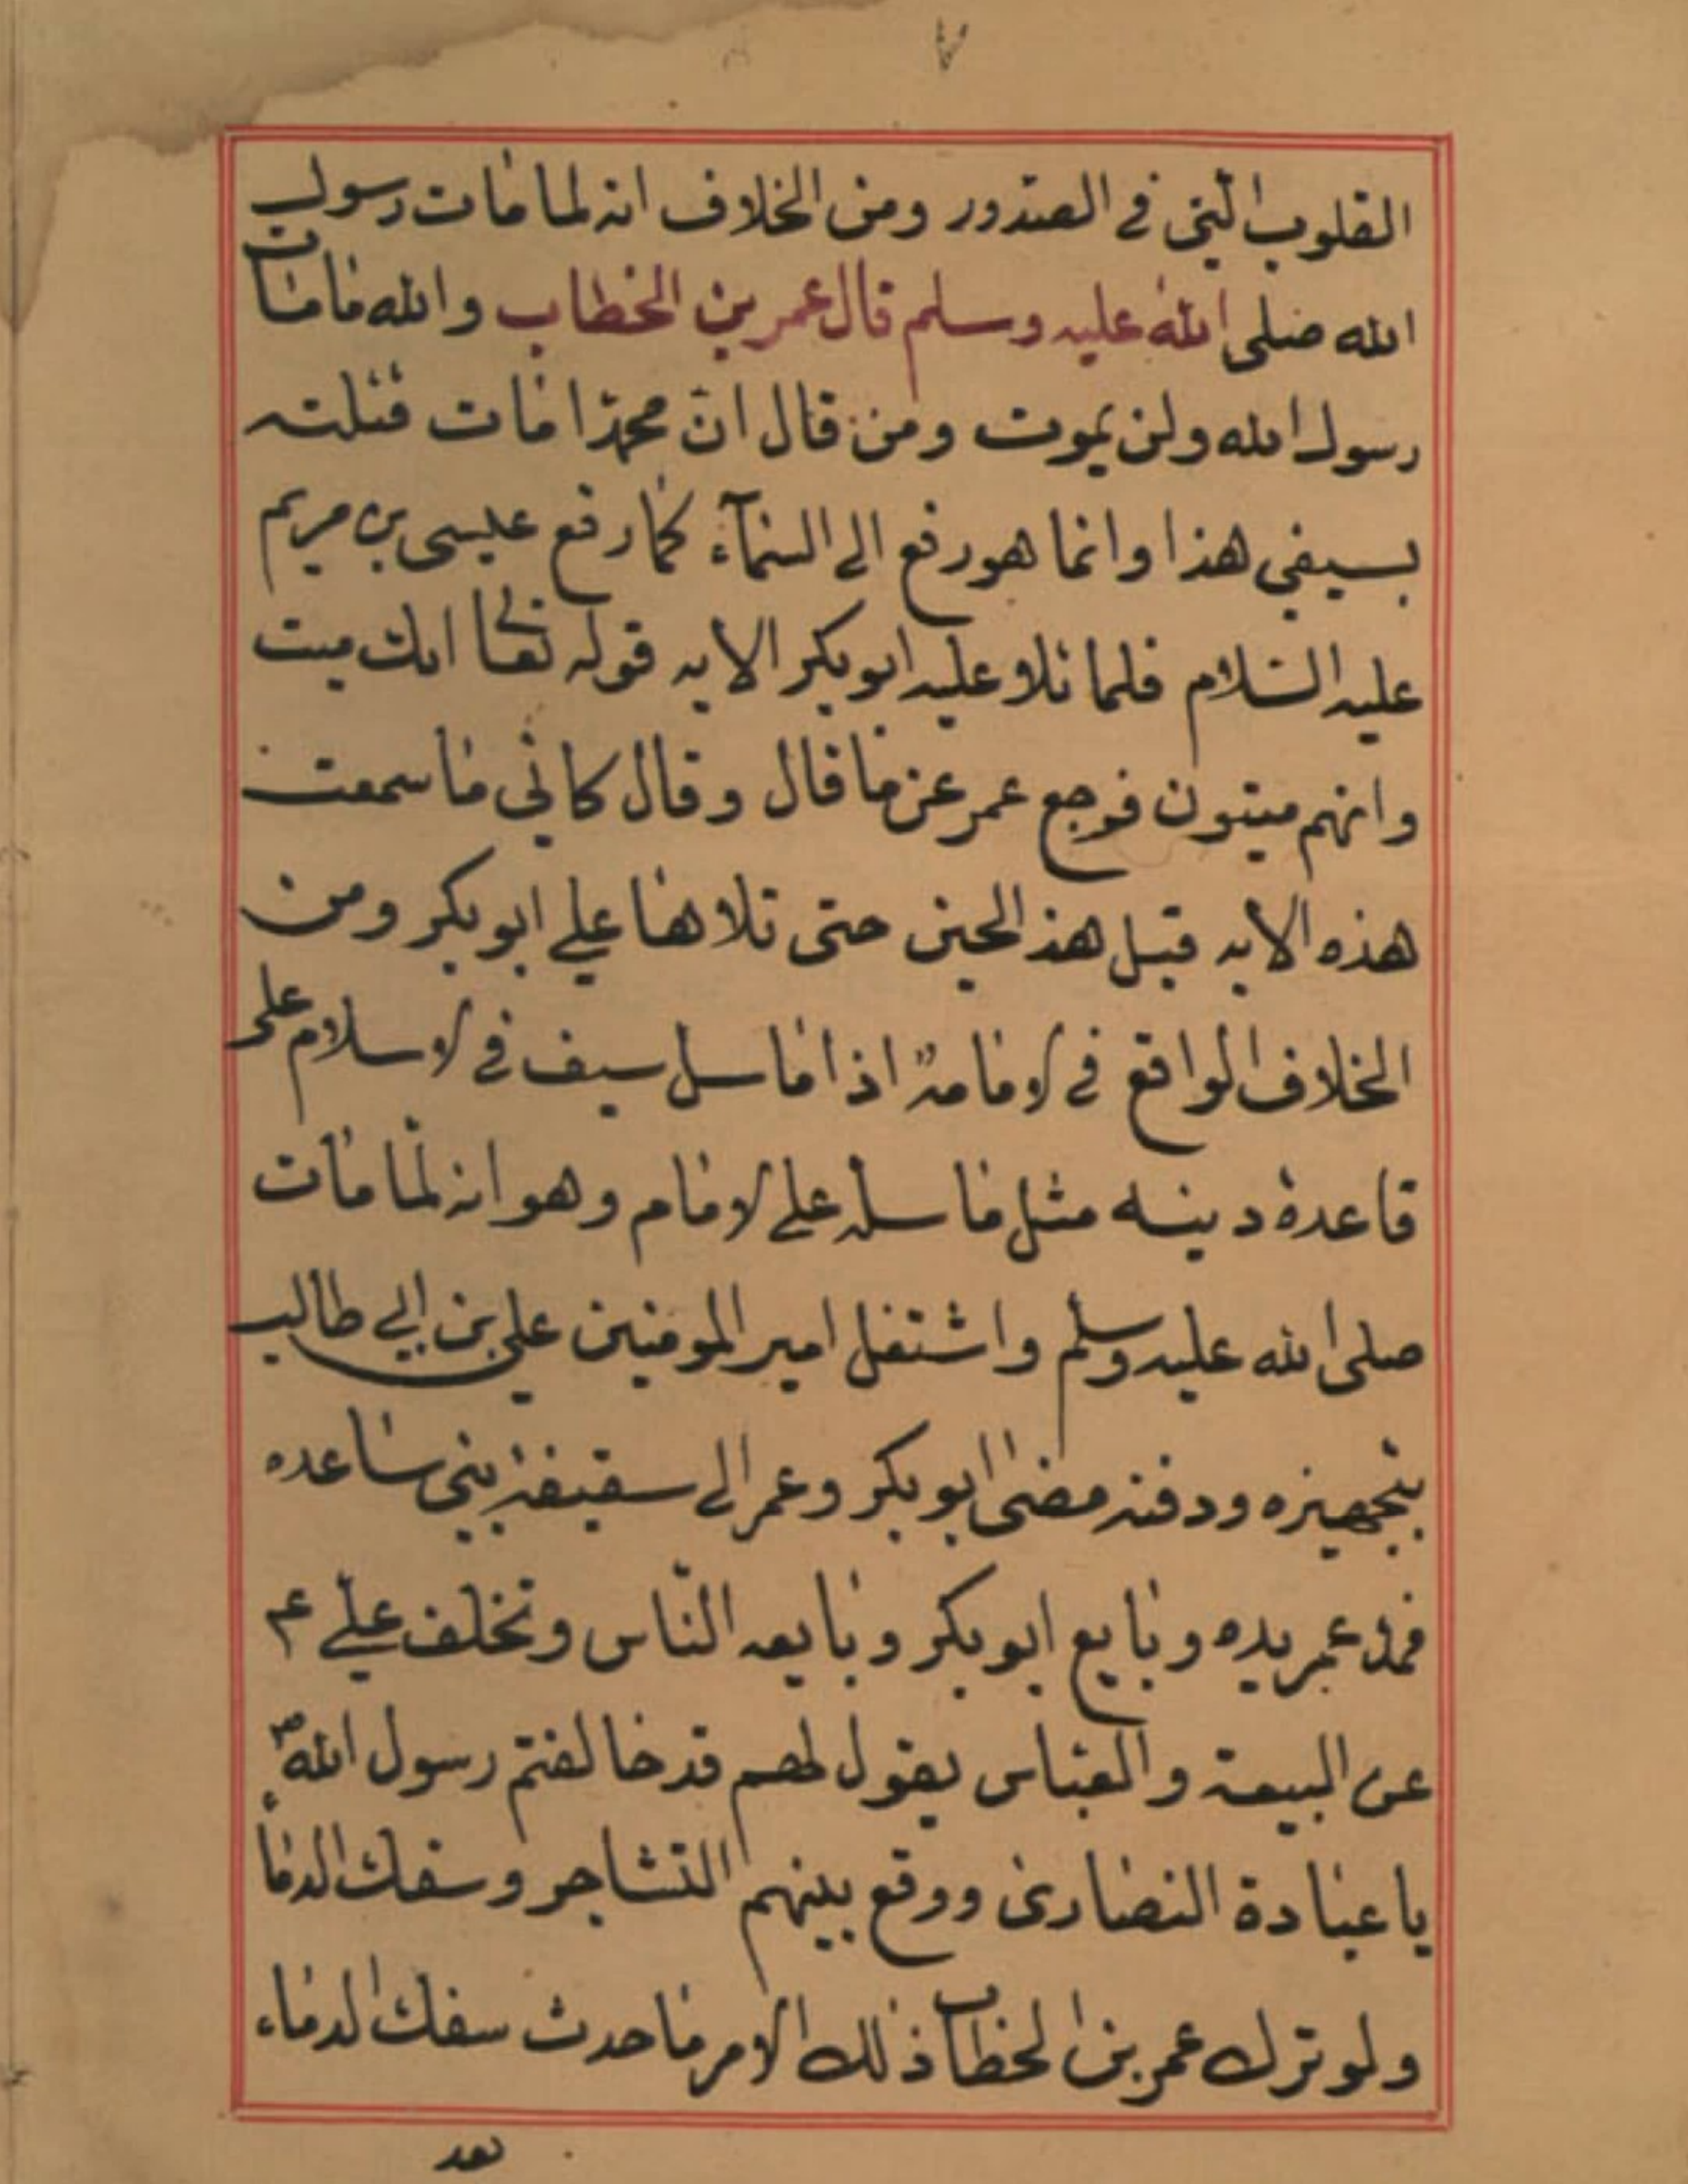 ٧
القلوب التي في الصدور ومن الخلاف انه لما مات رسول
الله صلى الله عليه وسلم قال عمر بن الخطاب والله ما مات
رسول الله ولن يموت ومن قال ان محمدا مات قتلته
بسيفي هذا وانما هو رفع الى السمآء كما رفع عيسى بن مريم
عليه السلام فلما تلا عليه ابو بكر الايه قوله تعا انك ميت
وانهم ميتون فرجع عمر عن ما قال وقال كاني ما سمعت
هذه الايه قبل هذ الحين حتى تلاها علي ابو بكر ومن
الخلاف الواقع في الامامة اذا ما سل سيف في الاسلام على
قاعدة دينيه مثل ما سله على الامام وهو انه لما مات
صلى الله عليه وسلم واشتغل امير المومنين علي بن ابي طالب
بتجهيزه ودفنه مضى ابو بكر وعمر الى سقيفة بني ساعده
فمد عمر يده وبايع ابو بكر وبايعه الناس وتخلف علي عم
عن البيعة والعباس يقول لهم قد خالفتم رسول الله ص
يا عبادة النصارى ووقع بينهم التشاجر وسفك الدماء
ولو ترك عمر بن الخطاب ذلك الامر ما حدث سفك الدماء
بعد